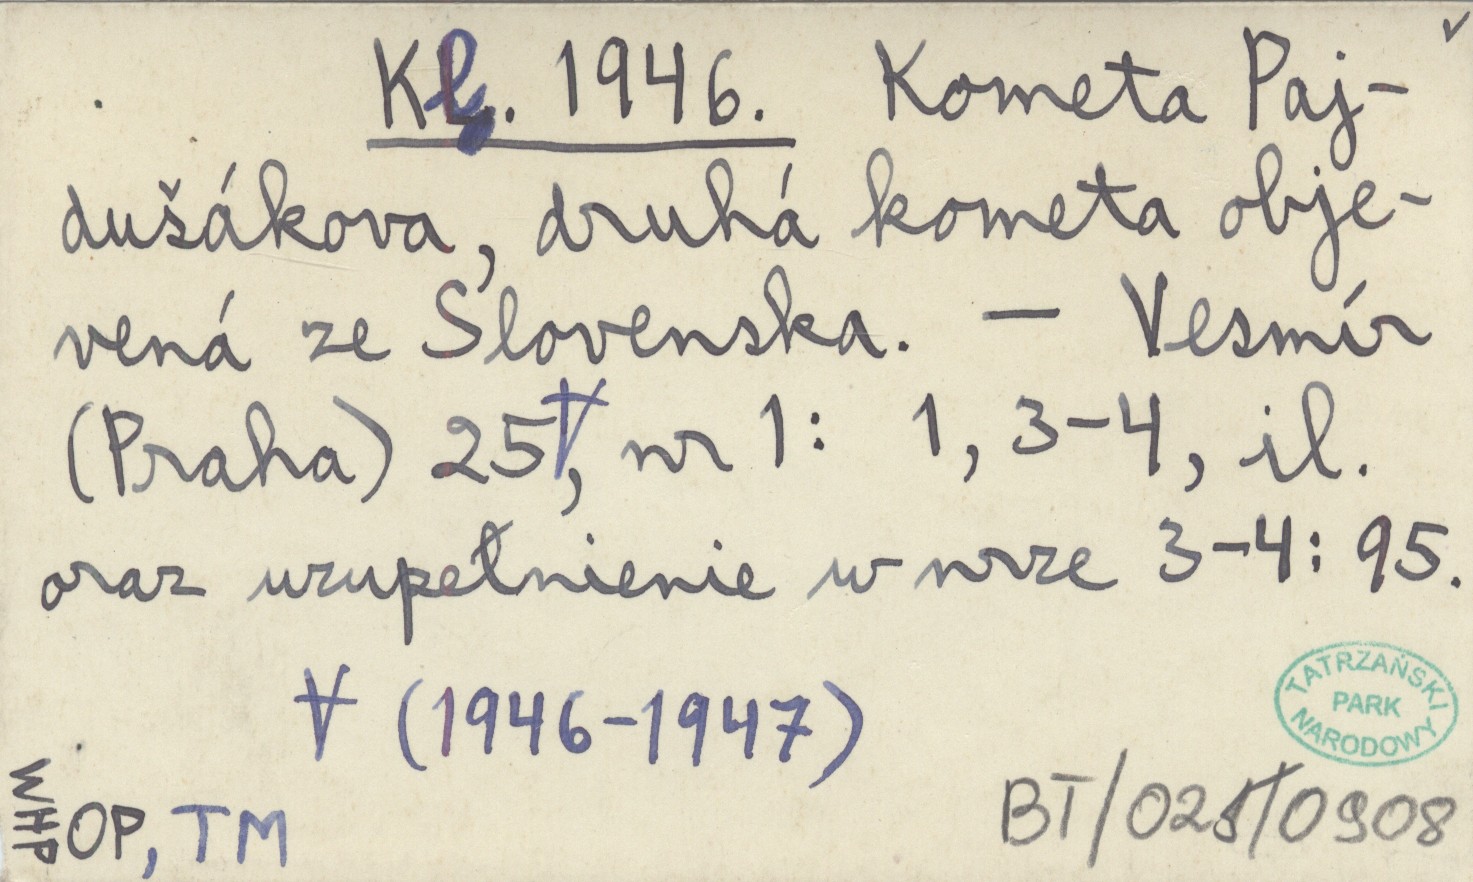 Kl. 1946. Kometa Paj-
dušákova, druhá kometa obje-
vená ze Slovenska. — Vesmír
(Praha) 25, nr 1: 1, 3-4, il.
oraz uzupełnienie w nrze 3-4: 95.
(1946-1947)
TATRZAŃSKI
PARK
NARODOWY
WHP
OP, TM
BT/021/0908